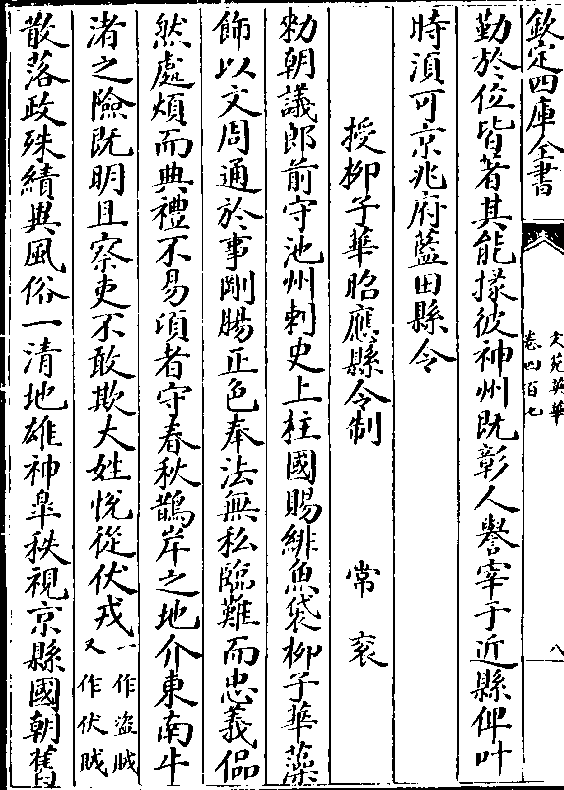 欽定四庫全書
文苑英華
卷四百七
八
勤於位皆著其能掾彼神州既彰人譽宰于近縣俾叶
時須可京兆府藍田縣令
授柳子華昭應縣令制
常衮
勅朝議郎前守池州刺史上柱國賜緋魚袋柳子華藻
飾以文周通於事剛腸正色奉法無私臨難而忠義偘
然處煩而典禮不易頃者守春秋鵲岸之地介東南牛
渚之險既明且察吏不敢欺大姓悅從伏戎一作盜賊又作伏賊
散落政殊績異風俗一清地雄神臯秩視京縣國朝舊